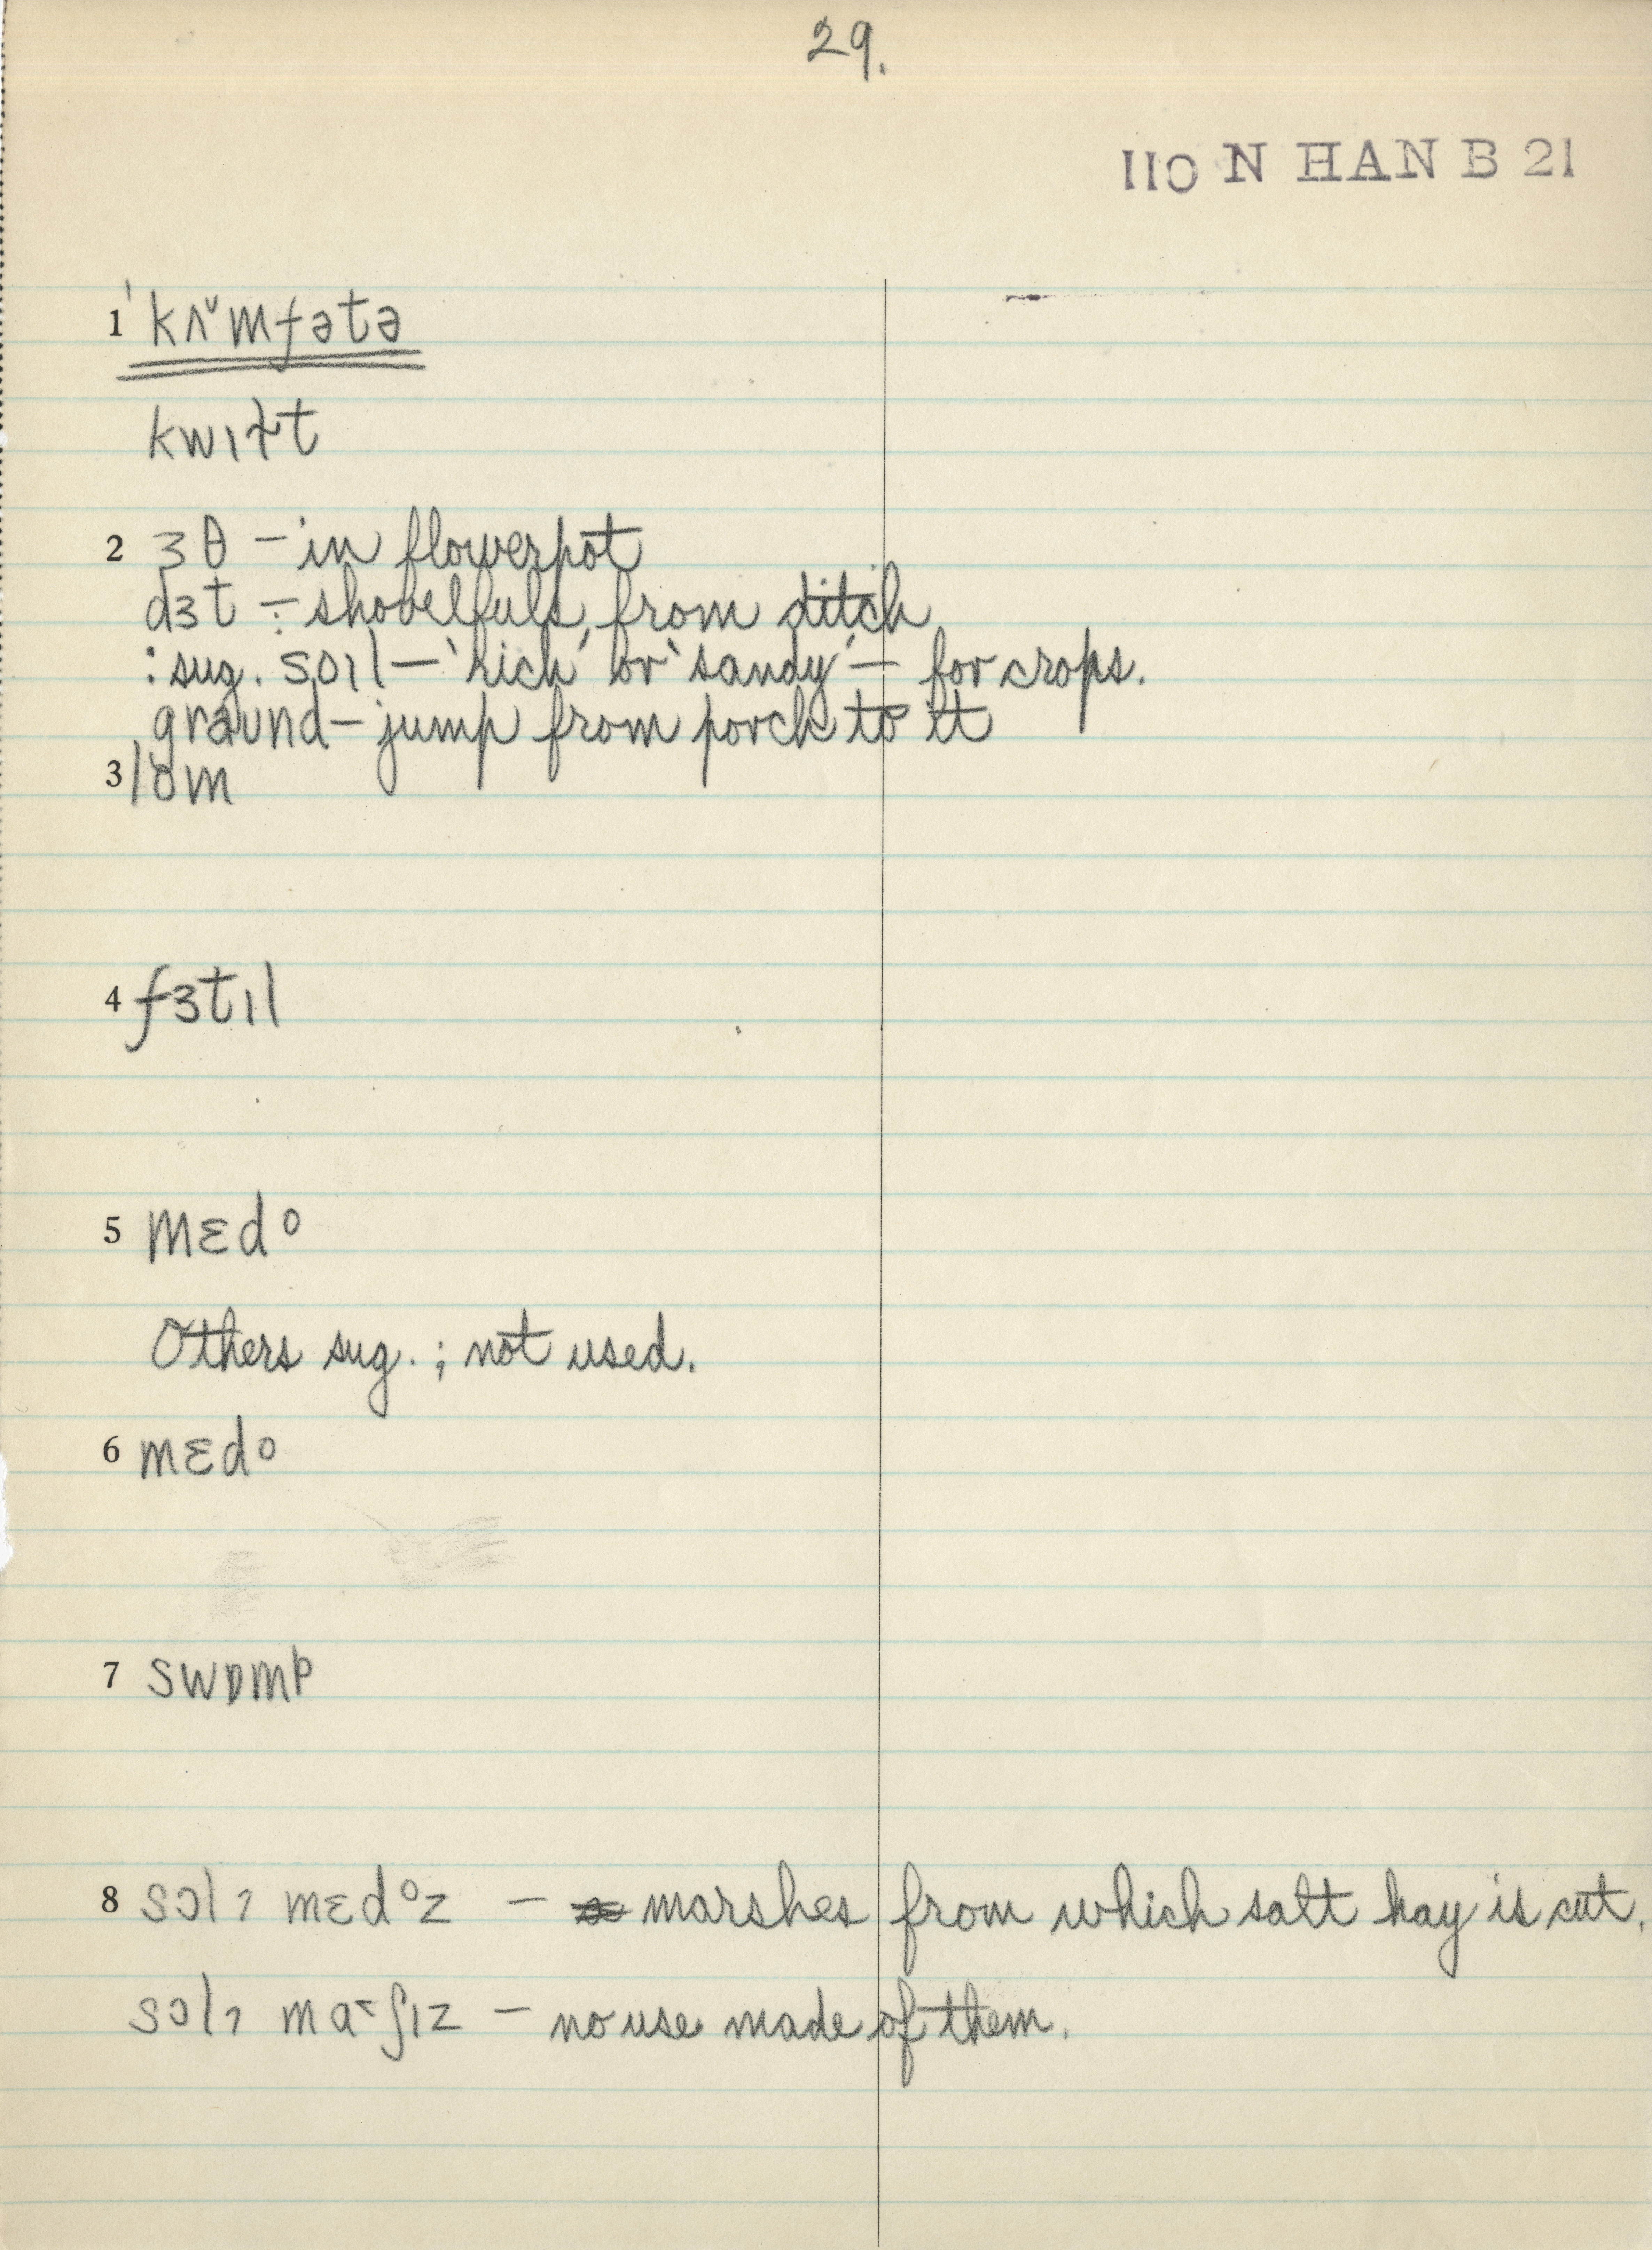 29.
110 N HAN B 21
1 ˈkʌ˅mfətə
kwɪɫt
2 ɜθ – in flowerpot
dɜt ÷ shovelfuls, from ditch
: sug. sɔɪl – ‘rich’ or ‘sandy’ – for crops.
graund – jump from porch to it
3 lom
4 fɜtɪl
5 mɛdo
Others sug. ; not used.
6 mɛdo
7 swɒmp
8 sɔlʔ mɛdoz – marshes from which salt hay is cut.
sɔlʔ ma˂ʃɪz – no use made of them.